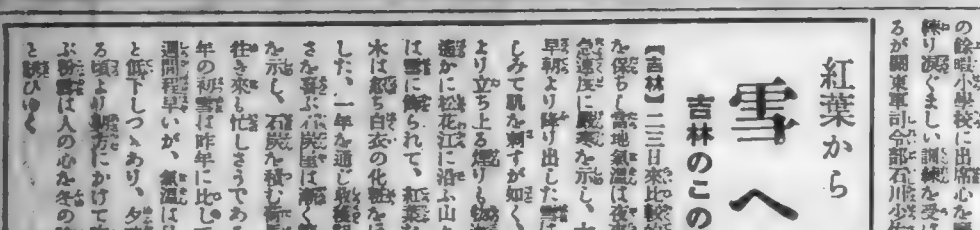 の餘暇小學校に出席心を
練り涙ぐましい訓練を受け
るが關東軍司令部石川少佐
紅葉から
雪へ
吉林のこの
【吉林】二三日來比較的
を保ちし當地氣溫は夜
急速度に嚴寒を示し、
早朝より降り出した雪は
しみて肌を刺すが如く、
より立ち上る煙りも
遙かに松花江に沿ふ山
は雪に飾られて、紅葉
木は忽ち白衣の化粧を
した、一年を通じ收穫
さを喜ぶ石炭屋は漸く
を示し、石炭を積む
往き來も忙しさうであ
年の初雪は昨年に比して
週間程早いが、氣溫は
と低下しつゝあり、夕
る頃より朝方にかけて
ぶ粉雪は人の心を冬の
と誘ひゆく